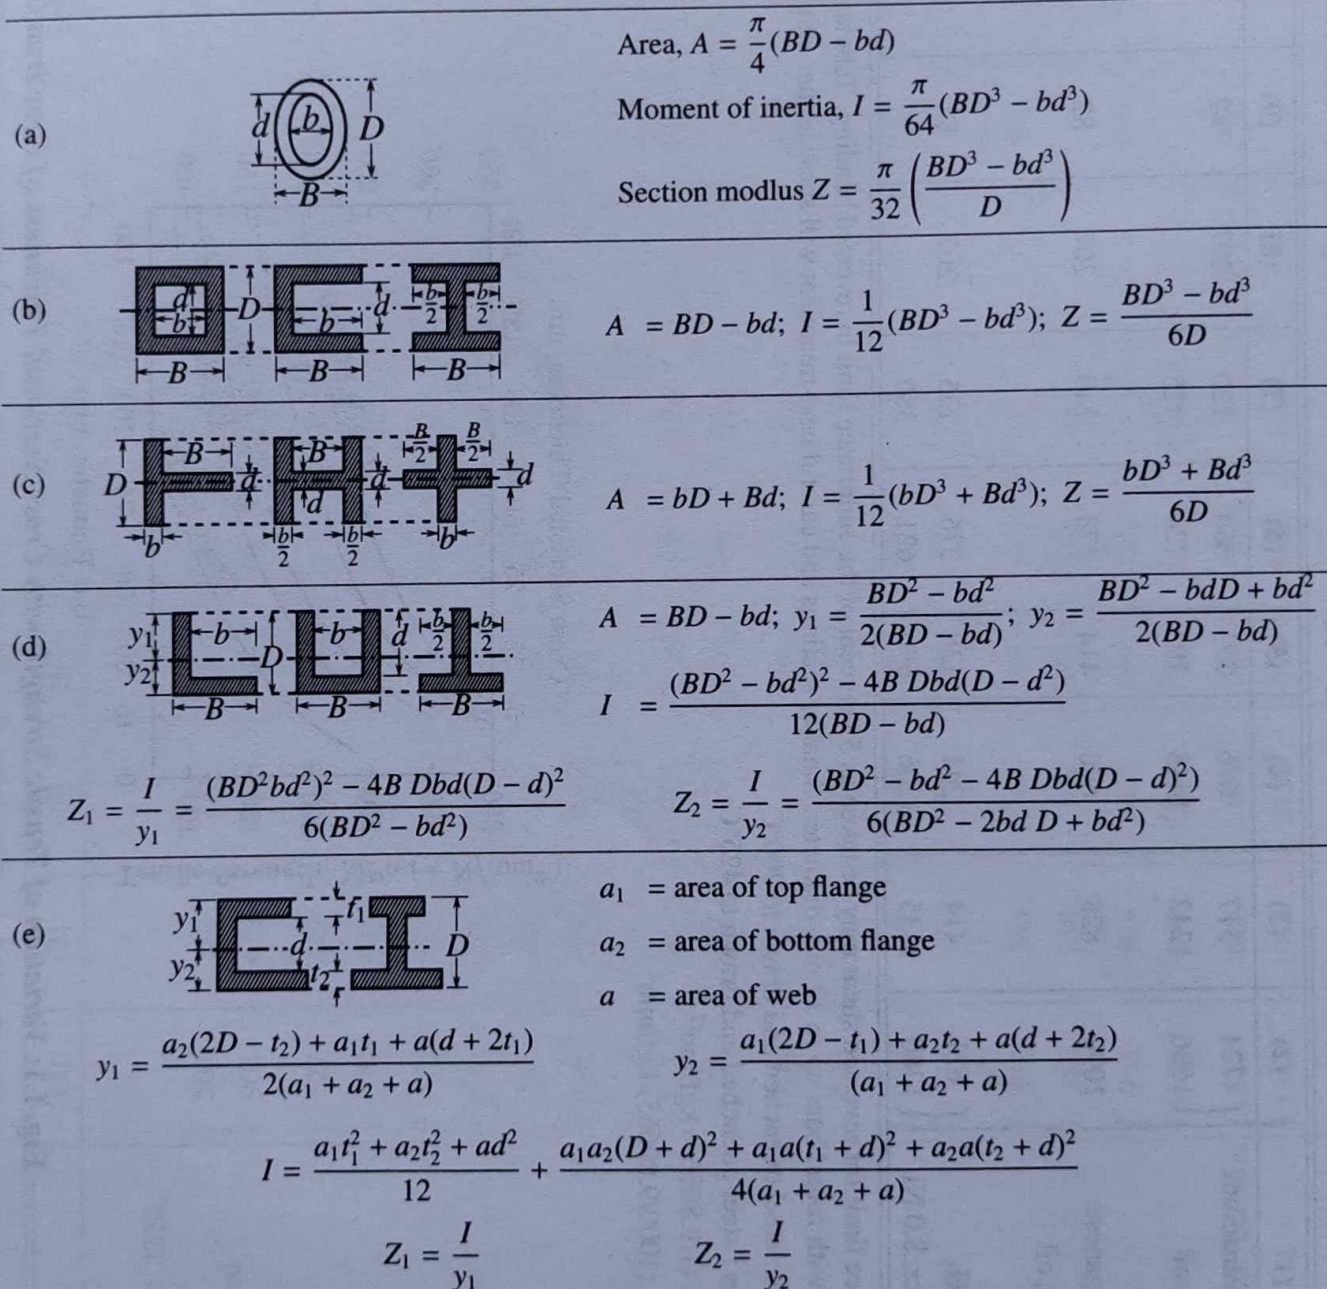 Area, A = π/4 (BD − bd)
(a) d b D B
Moment of inertia, I = π/64 (BD³ − bd³)
Section modlus Z = π/32 ((BD³ − bd³)/D)
(b) d b D B b d B b/2 b/2 B
A = BD − bd; I = 1/12 (BD³ − bd³); Z = (BD³ − bd³)/6D
(c) D B d b B d d b/2 b/2 B/2 B/2 d b
A = bD + Bd; I = 1/12 (bD³ + Bd³); Z = (bD³ + Bd³)/6D
(d) y₁ y₂ b D B b d B b/2 b/2 B
A = BD − bd; y₁ = (BD² − bd²)/2(BD − bd); y₂ = (BD² − bdD + bd²)/2(BD − bd)
I = ((BD² − bd²)² − 4B Dbd(D − d²))/12(BD − bd)
Z₁ = I/y₁ = ((BD²bd²)² − 4B Dbd(D − d)²)/6(BD² − bd²)
Z₂ = I/y₂ = (BD² − bd² − 4B Dbd(D − d)²)/6(BD² − 2bd D + bd²)
(e) y₁ y₂ d t₁ t₂ D
a₁ = area of top flange
a₂ = area of bottom flange
a = area of web
y₁ = (a₂(2D − t₂) + a₁t₁ + a(d + 2t₁))/2(a₁ + a₂ + a)
y₂ = (a₁(2D − t₁) + a₂t₂ + a(d + 2t₂))/(a₁ + a₂ + a)
I = (a₁t₁² + a₂t₂² + ad²)/12 + (a₁a₂(D + d)² + a₁a(t₁ + d)² + a₂a(t₂ + d)²)/4(a₁ + a₂ + a)
Z₁ = I/y₁
Z₂ = I/y₂